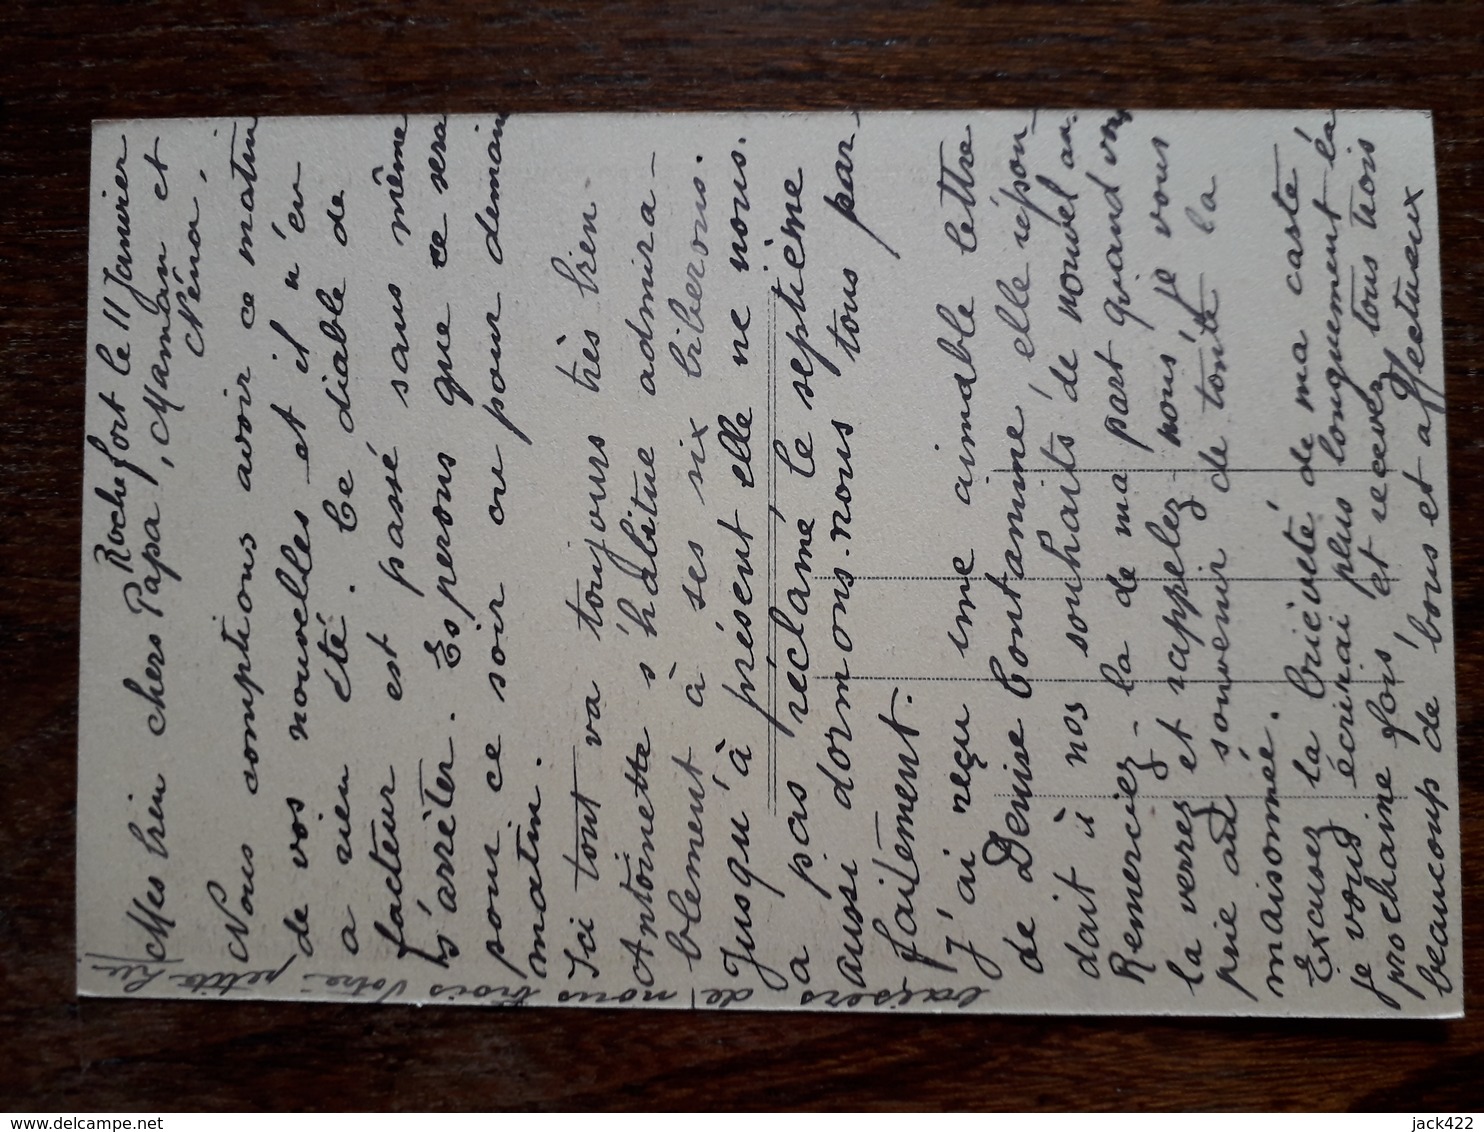 Rochefort le 11 Janvier
Mes bien chers Papa, Maman et
Néna,
Nous comptions avoir ce matin
de vos nouvelles et il n'en
a rien été. Ce diable de
facteur est passé sans même
s'arrêter. Espérons que ce sera
pour ce soir ou pour demain
matin.
Ici tout va toujours très bien.
Antoinette s'habitue admira-
blement à ses six biberons.
Jusqu'à présent elle ne nous.
a pas réclamé le septième
aussi dormons-nous tous par-
faitement.
J'ai reçu une aimable lettre
de Denise Contamine, elle répon-
dait à nos souhaits de nouvel an.
Remerciez-la de ma part quand vous
la verrez et rappelez-nous, je vous
prie au souvenir de toute la
maisonnée.
Excusez la brièveté de ma carte
je vous écrirai plus longuement la
prochaine fois, et recevez tous trois
beaucoup de bons et affectueux
baisers de nous trois Votre petite
jack422